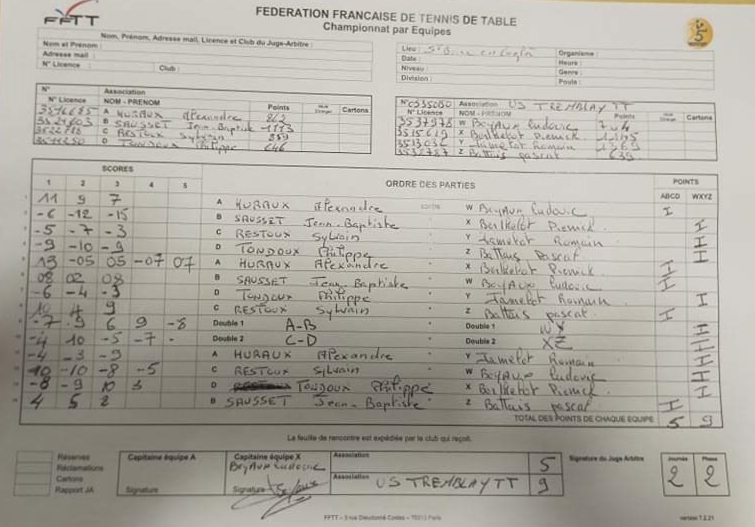 FFTT
FEDERATION FRANCAISE DE TENNIS DE TABLE
Championnat par Equipes
Nom, Prénom, Adresse mail, Licence et Club du Juge-Arbitre :
Nom et Prénom :
Adresse mail :
N° Licence : Club :
Lieu : Organisme :
Date : Heure :
Niveau : Genre :
Division : Poule :
N° Association
N° Licence NOM - PRENOM Points Cartons
A HURAUX Alexandre
B SAUSSET Jean-Baptiste 1113
C RESTOUX Sylvain
D TONDOUX Philippe 646
N° 0535080 Association US TREMBLAY TT
N° Licence NOM - PRENOM Points Cartons
3537978 W BeyAux Ludovic
3515619 X Berthelot Pierrick
Y Jamelot Romain
Z Battais pascal 639
SCORES ORDRE DES PARTIES POINTS
1 2 3 4 5 ABCD WXYZ
11 9 7 A HURAUX Alexandre W BeyAux Ludovic I
-6 -12 -15 B SAUSSET Jean-Baptiste X Berthelot Pierrick I
-5 -7 -3 C RESTOUX Sylvain Y Jamelot Romain I
-9 -10 -9 D TONDOUX Philippe Z Battais Pascal I
13 -05 05 -07 07 A HURAUX Alexandre X Berthelot Pierrick I
08 02 08 B SAUSSET Jean-Baptiste W BeyAux Ludovic I
-6 -4 -3 D TONDOUX Philippe Y Jamelot Romain I
10 9 C RESTOUX Sylvain Z Battais pascal I
-7 9 6 9 -8 Double 1 A-B Double 1 WY I
-4 10 -5 -7 - Double 2 C-D Double 2 XZ I
-4 -3 -9 A HURAUX Alexandre Y Jamelot Romain I
10 -10 -8 -5 C RESTOUX Sylvain W BeyAux Ludovic I
-8 -9 10 3 D TONDOUX Philippe X Berthelot Pierrick I
4 5 2 B SAUSSET Jean-Baptiste Z Battais pascal I
TOTAL DES POINTS DE CHAQUE EQUIPE 5 9
La feuille de rencontre est expédiée par le club qui reçoit.
Réserves Capitaine équipe A Capitaine équipe X Association 5 Signature du Juge Arbitre Journée Phase
Réclamations BeyAux Ludovic 2 2
Cartons Association US TREMBLAY TT 9
Rapport JA Signature Signature
FFTT - 3 rue Dieudonné Costes - 75013 Paris version 7.2.21